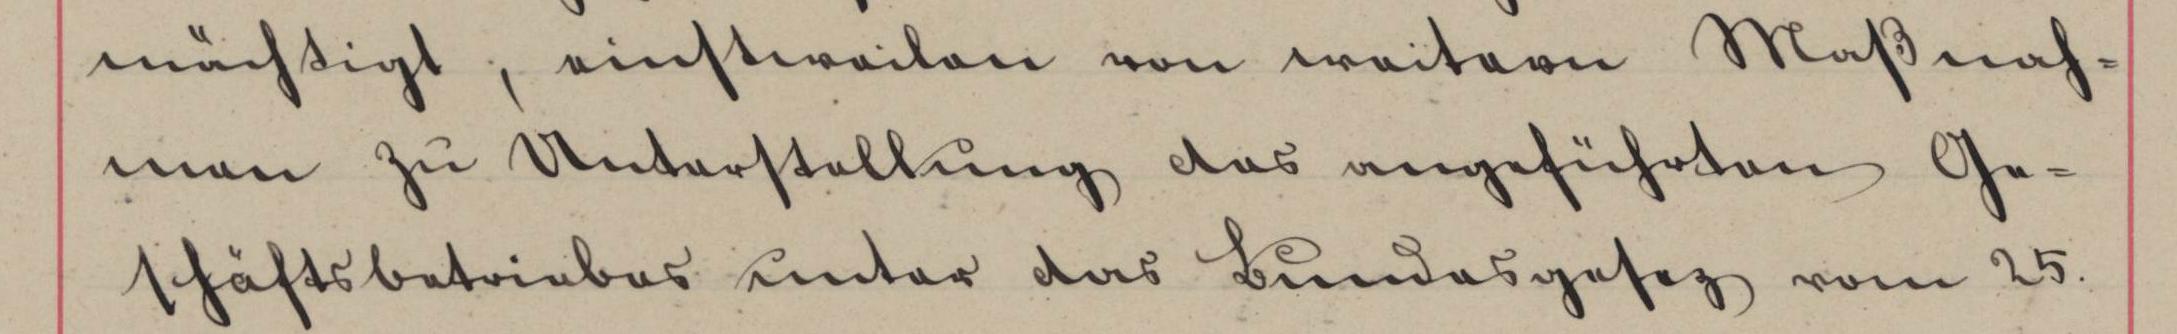 mächtigt, einstweilen von weitern Maßnah-
men zu Unterstellung des angeführten Ge-
schäftsbetriebes unter das Bundesgesez vom 25.